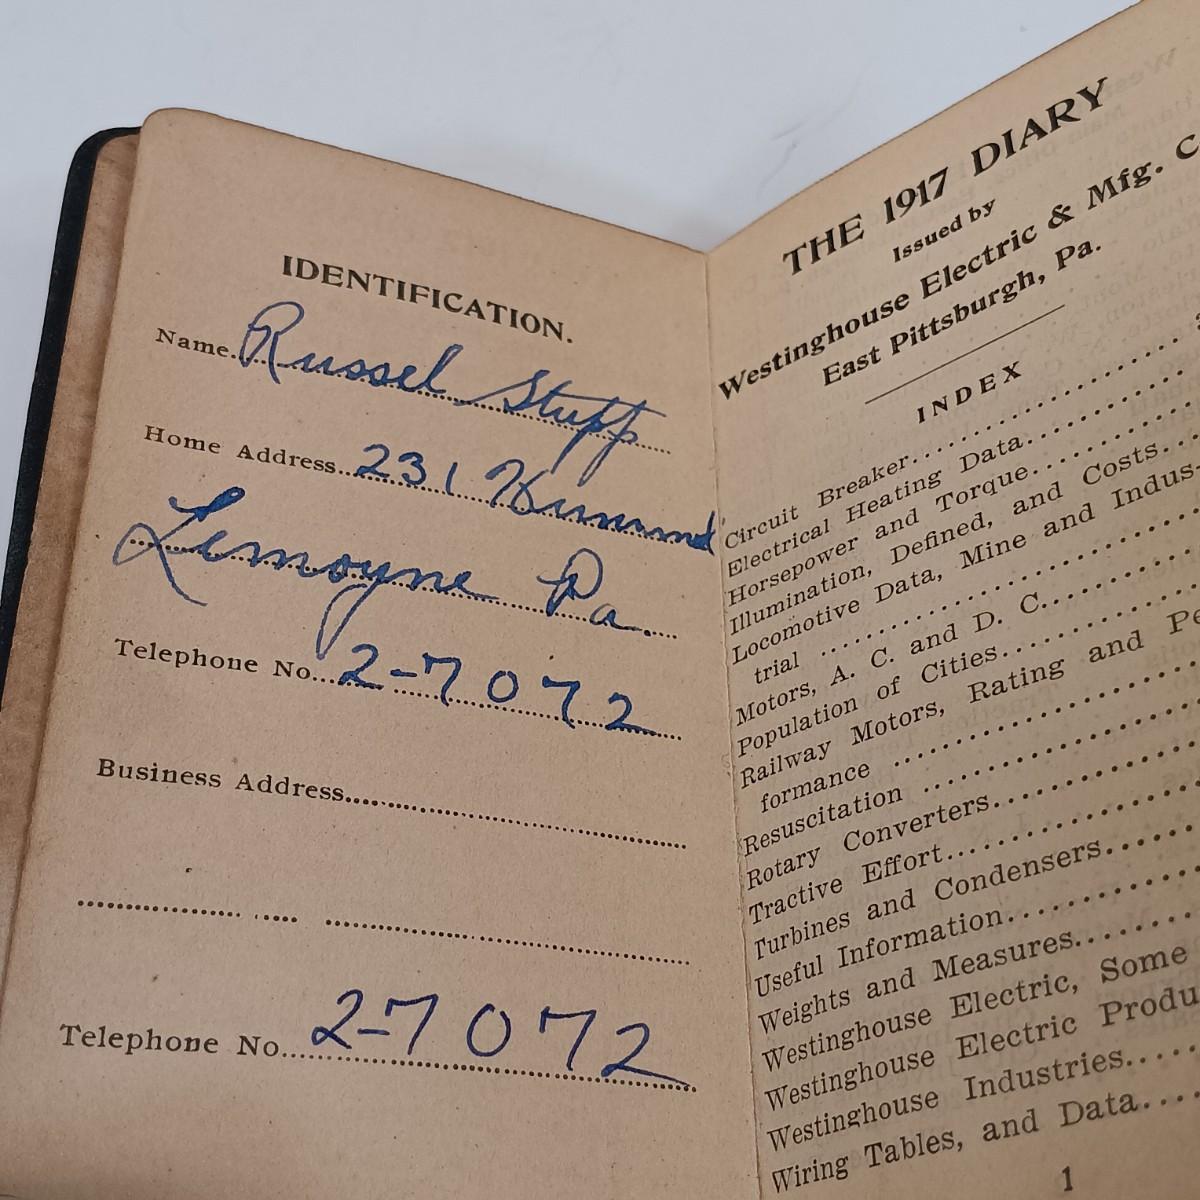 IDENTIFICATION.
Name Russel Stupp
Home Address 231 Hummel
Lemoyne Pa.
Telephone No. 2-7072
Business Address
Telephone No. 2-7072
THE 1917 DIARY
Issued by
Westinghouse Electric & Mfg. C
East Pittsburgh, Pa.
INDEX
Circuit Breaker
Electrical Heating Data
Horsepower and Torque
Illumination, Defined, and Costs
Locomotive Data, Mine and Indus-
trial
Motors, A. C. and D. C.
Population of Cities
Railway Motors, Rating and Pe
formance
Resuscitation
Rotary Converters
Tractive Effort
Turbines and Condensers
Useful Information
Weights and Measures
Westinghouse Electric, Some
Westinghouse Electric Produ
Westinghouse Industries
Wiring Tables, and Data
1